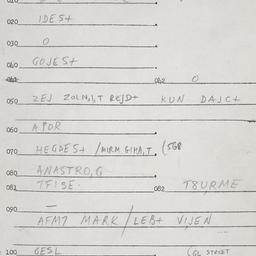 020 IDES+
030 O
040 GOJES+
042 O
050 ZEJ REJD+ KUN DAJC+
060 APOR
070 HEGDES+ /MIRM GIHA,T. (SGR
080 ANASTRO,G
081 TFISE. 082 T8URME
090 —
AFM7 MARK / LEB+ VIJEN
100 GESL (GL STREET